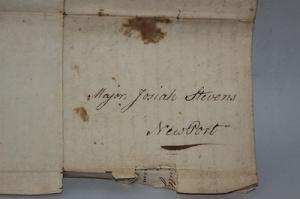 Major Josiah Stevens
NewPort